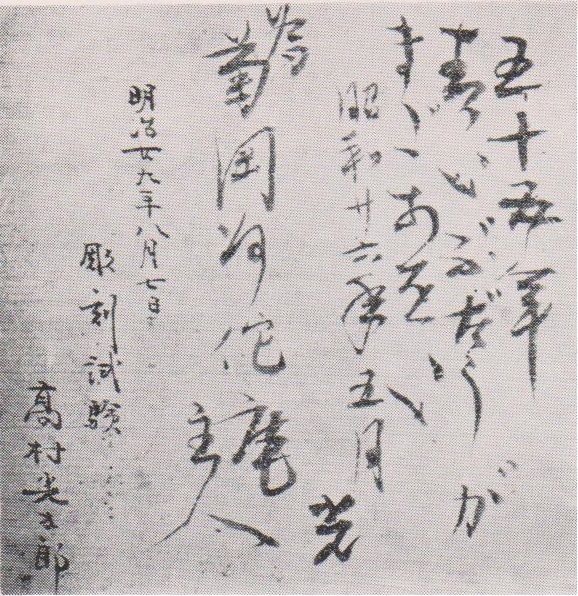 五十五年
青いぶだうが
まだあをい
昭和廿六年五月
光
為
菊
主人
明治廿九年八月七日
彫刻試験
高村光太郎